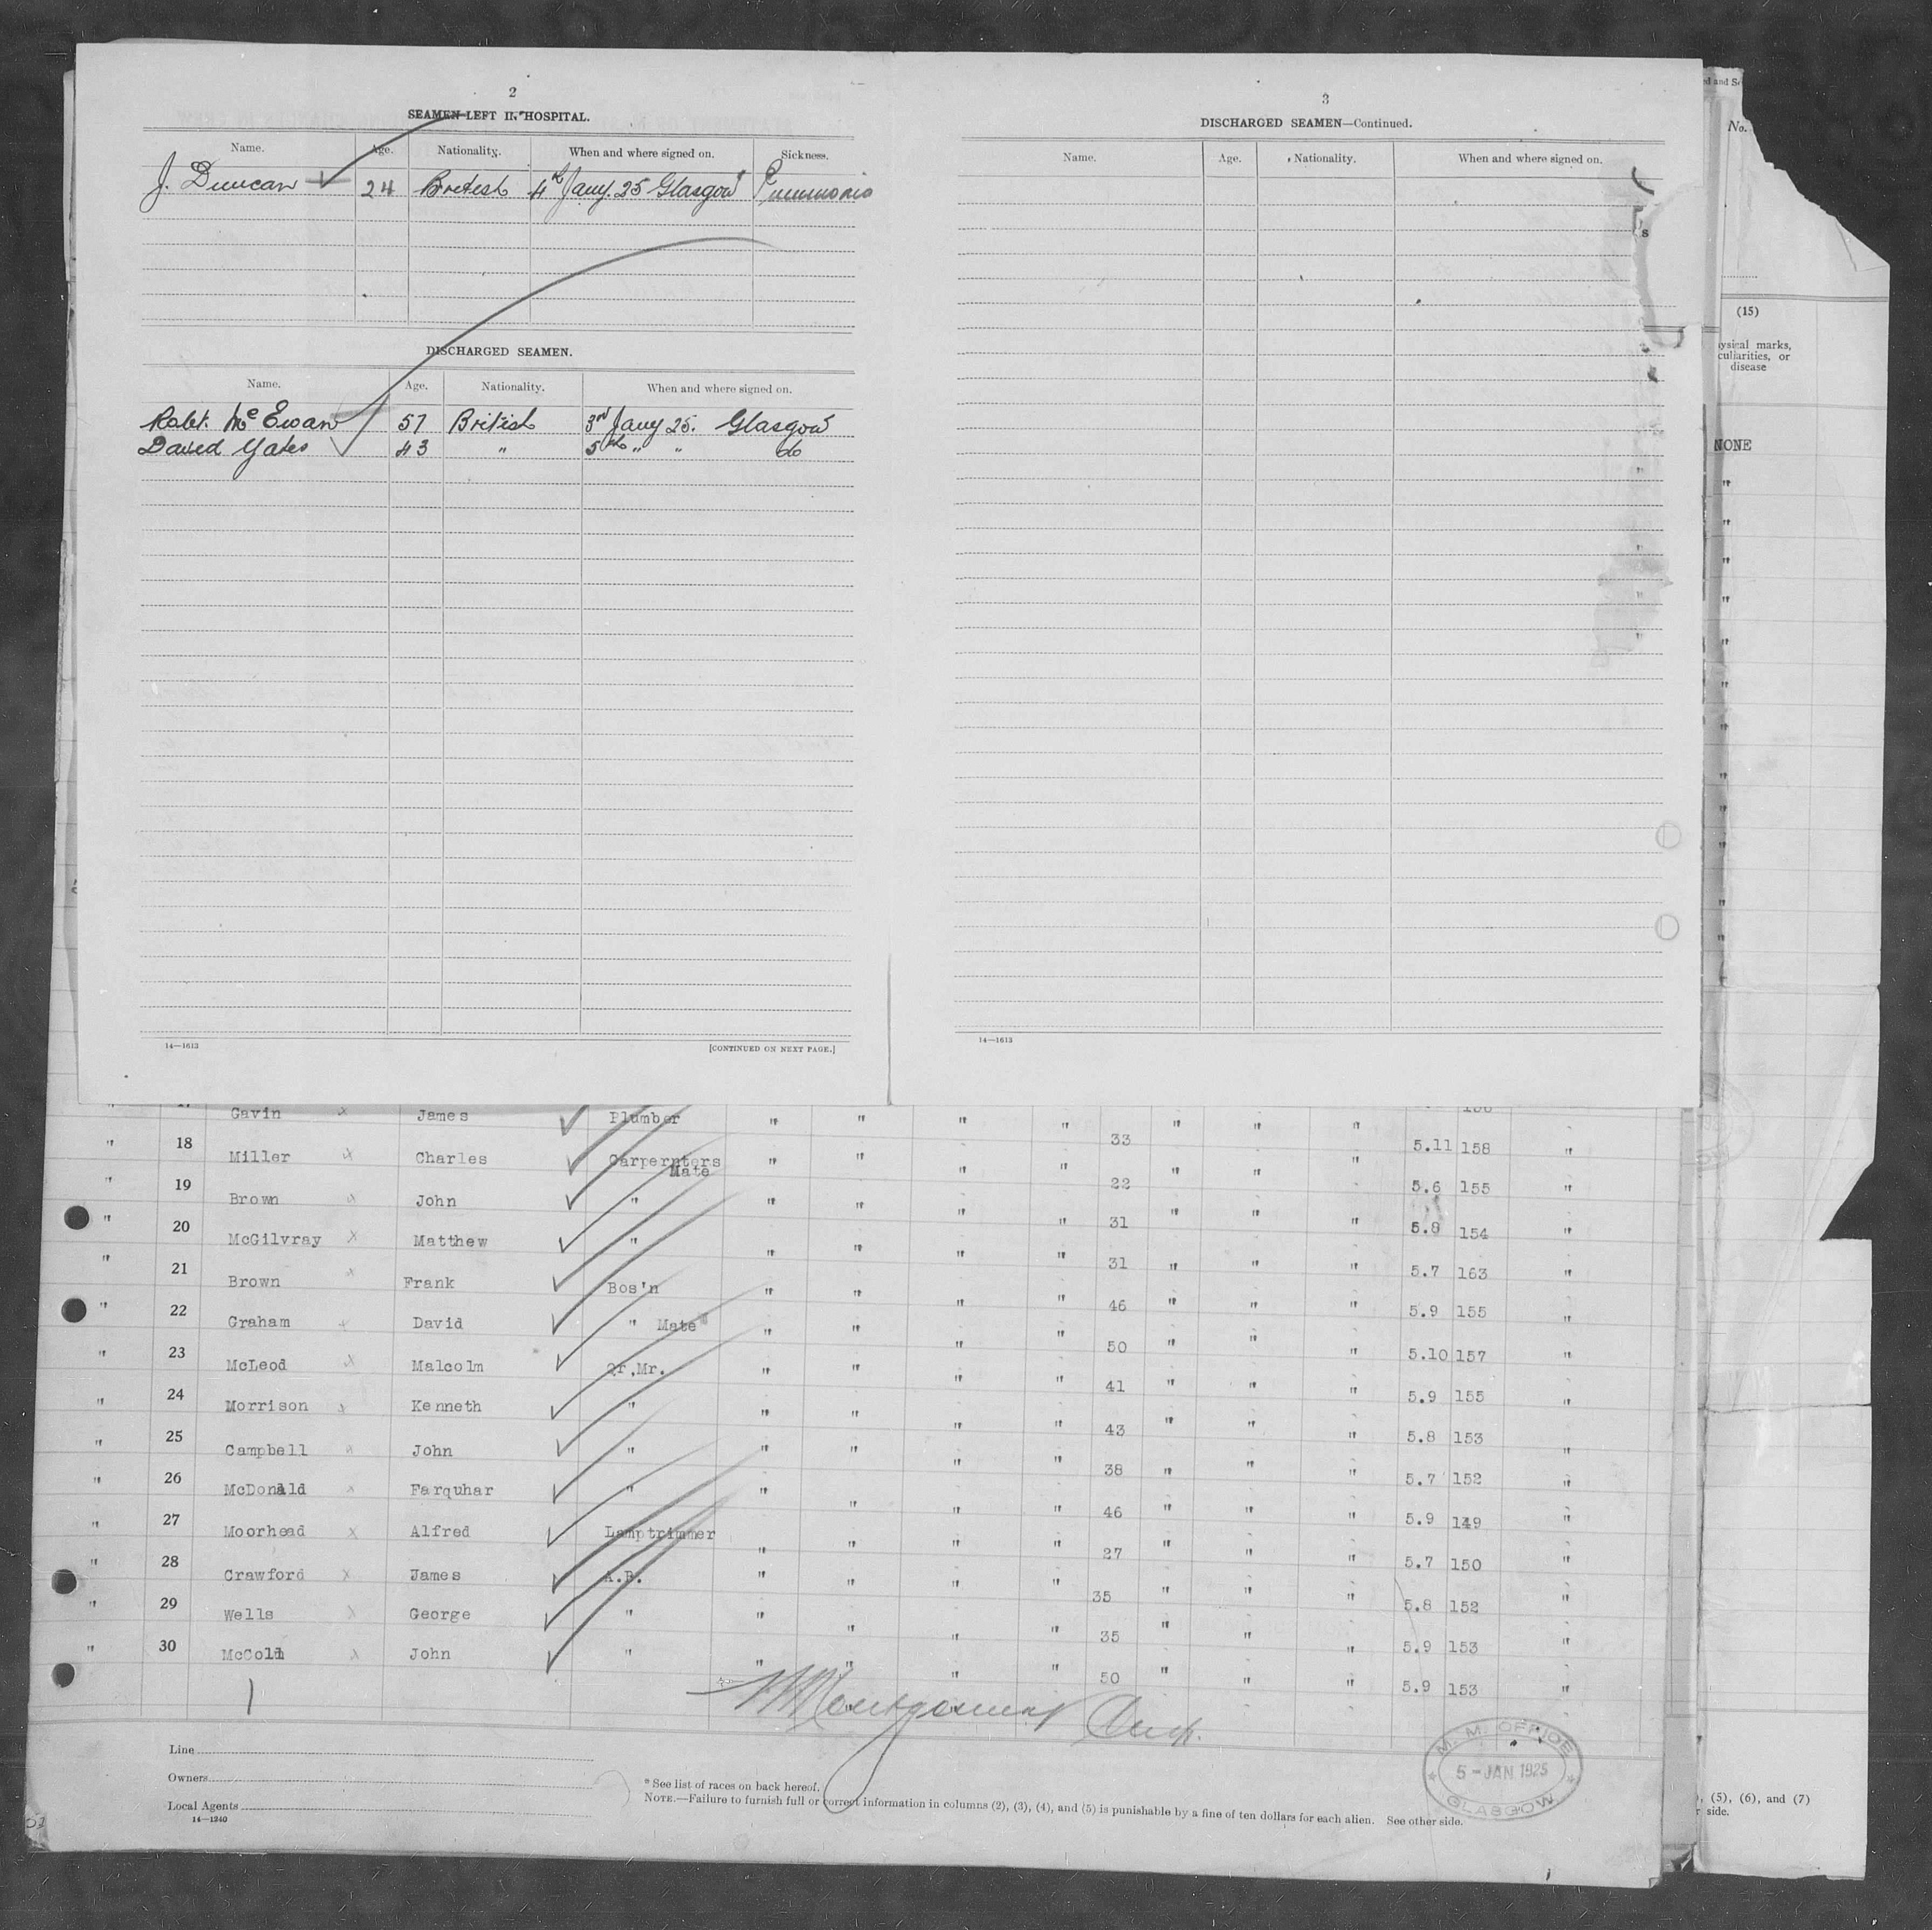 2
SEAMEN LEFT IN HOSPITAL.
Name. Age. Nationality. When and where signed on. Sickness.
J. Duncan 24 British 4th Jany. 25 Glasgow Pnumonia
DISCHARGED SEAMEN.
Name. Age. Nationality. When and where signed on.
Robt. McEwan 57 British 3rd Jany 25. Glasgow
David Yates 43 " 5th " " do
14—1613 [CONTINUED ON NEXT PAGE.]
3
DISCHARGED SEAMEN—Continued.
Name. Age. Nationality. When and where signed on.
14—1613
No.
(15)
ysical marks,
culiarities, or
disease
NONE
Gavin x James Plumber " " " " 33 " " " 5.11 158 "
" 18 Miller x Charles Carpernters Mate " " " " 22 " " " 5.6 155 "
" 19 Brown x John " " " " " 31 " " " 5.8 154 "
" 20 McGilvray x Matthew " " " " " 31 " " " 5.7 163 "
" 21 Brown x Frank Bos'n " " " " 46 " " " 5.9 155 "
" 22 Graham x David " Mate " " " " 50 " " " 5.10 157 "
" 23 McLeod x Malcolm Qr,Mr. " " " " 41 " " " 5.9 155 "
" 24 Morrison x Kenneth " " " " " 43 " " " 5.8 153 "
" 25 Campbell x John " " " " " 38 " " " 5.7 152 "
" 26 McDonald x Farquhar " " " " " 46 " " " 5.9 149 "
" 27 Moorhead x Alfred Lamptrimmer " " " " 27 " " " 5.7 150 "
" 28 Crawford x James A.B. " " " " 35 " " " 5.8 152 "
" 29 Wells x George " " " " " 35 " " " 5.9 153 "
" 30 McColl x John " " " " " 50 " " " 5.9 153 "
Montgomery
Line
Owners
Local Agents
14—1240
* See list of races on back hereof.
NOTE.—Failure to furnish full or correct information in columns (2), (3), (4), and (5) is punishable by a fine of ten dollars for each alien. See other side.
M. M. OFFICE
5-JAN 1925
GLASGOW
, (5), (6), and (7)
r side.